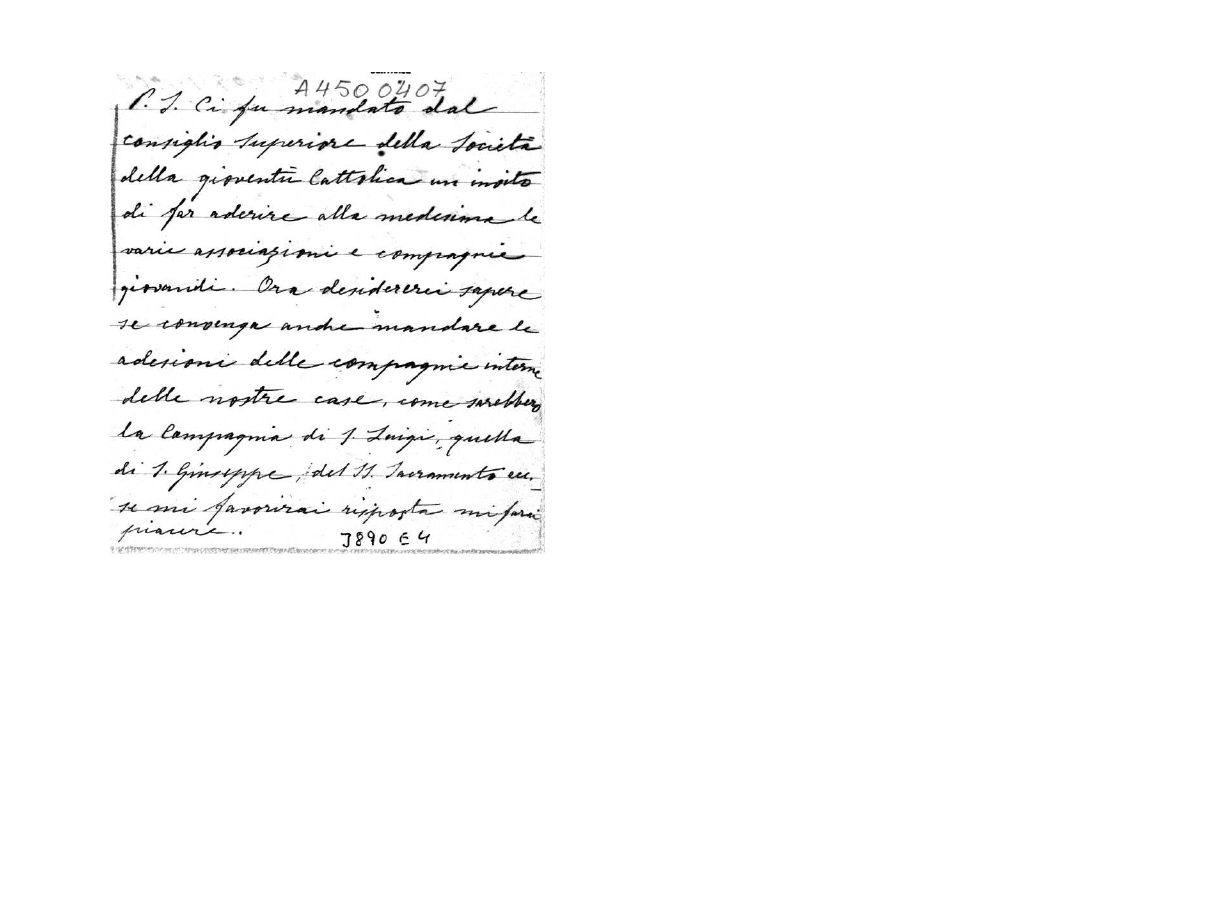 A4500407
P. S. Ci fu mandato dal
consiglio Superiore della Società
della gioventù Cattolica un invito
di far aderire alla medesima le
varie associazioni e compagnie
giovanili. Ora desidererei sapere
se convenga anche mandare le
adesioni delle compagnie interne
delle nostre case, come sarebbero
la Compagnia di S. Luigi, quella
di S. Giuseppe, del SS. Sacramento ecc.
se mi favorirai risposta mi farai
piacere..
3890 E 4